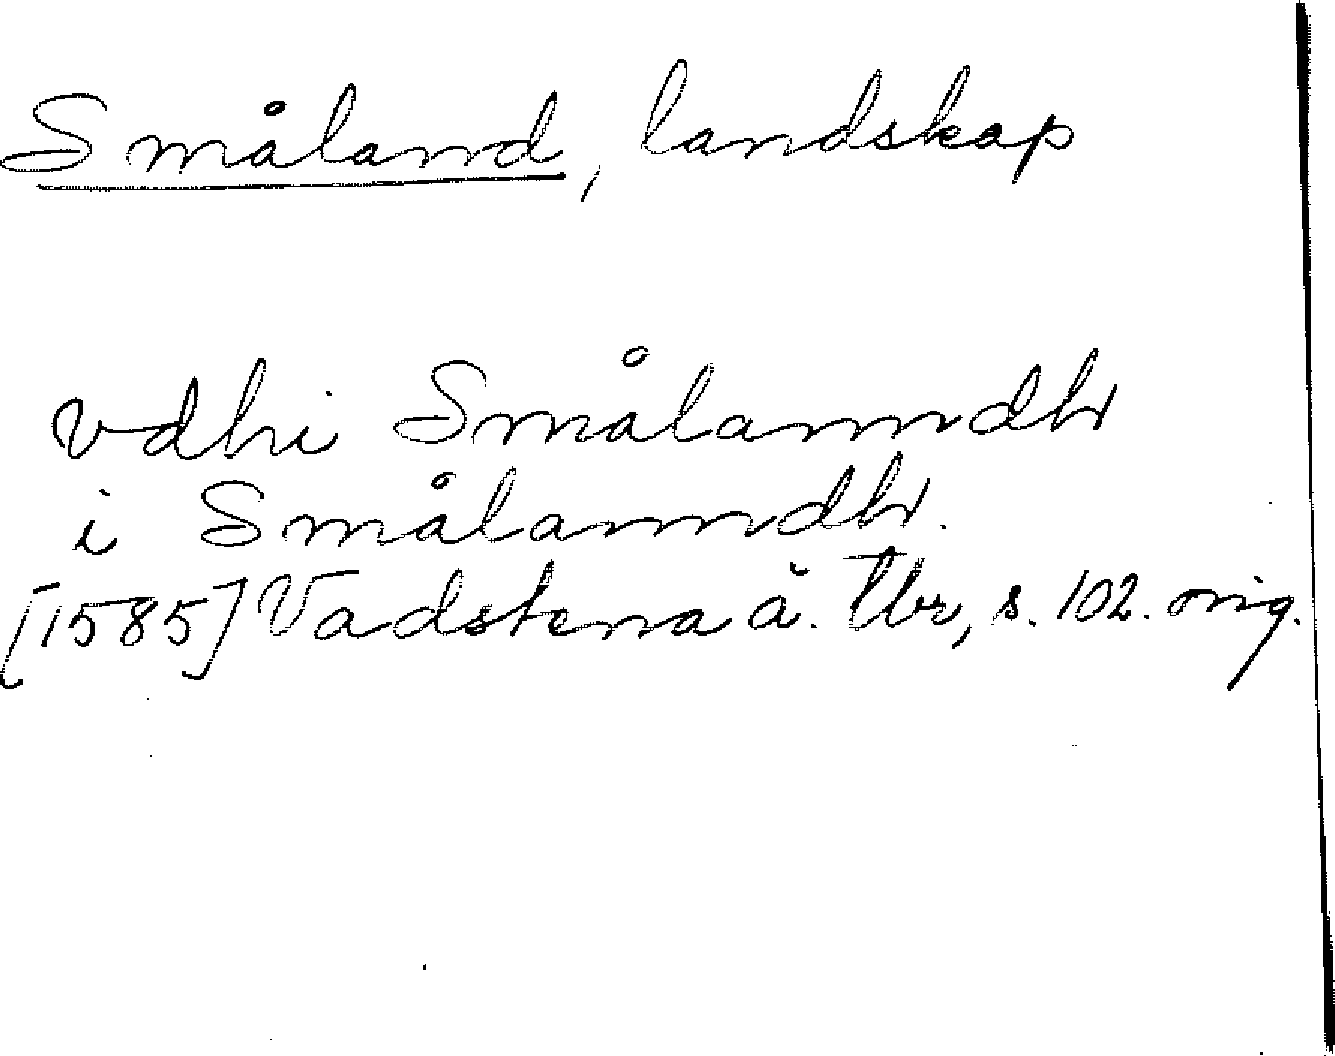 Småland, landskap
vdhi Smålanndh
i Smålanndh.
[1585] Vadstena ä. tbr, s. 102. orig.